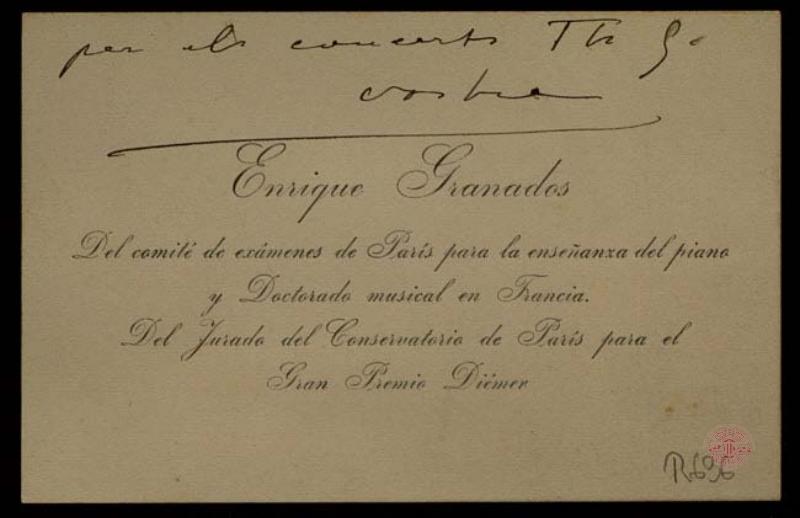 per els concerts Th

Enrique Granados
Del comité de exámenes de París para la enseñanza del piano
y Doctorado musical en Francia.
Del Jurado del Conservatorio de París para el
Gran Premio Diémer
R696